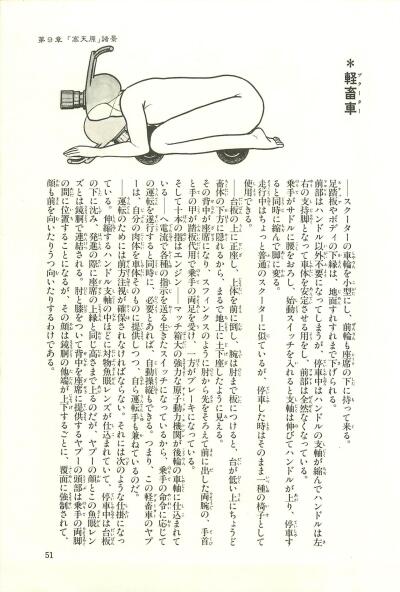 第9章 「寒天原」諸景
＊軽畜車
ブクーター
――スクーターの車輪を小型にし、前輪も座席の下に持って来る。
足踏板やボディーの下縁は、地面すれすれまで下げられる。
前部はハンドル以外不要になってしまうが、停車中はハンドルの支軸が縮んでハンドルは左
右の支持脚となって車体を安定させる用をし、前部は全然なくなっている。
乗手がサドルに腰をおろし、始動スイッチを入れると支軸は伸びてハンドルが上り、停車す
ると同時に縮んで脚に変る。
走行中はちょっと普通のスクーターに似ているが、停車した時はそのまま一種の椅子として
使用できる。
台板の上に正座し、上体を前に倒し、腕は肘まで板につけると、台が低い上にちょうど
畜体の下方に隠れるから、まるで地に上下座したように見える。
その背中が座席になり、スフィンクスのように肘から先をそろえて前に出した両腕の、手首
と手の甲が踏板代用で乗手の両足を受け、一方がブレーキになっている。
そして十本の指はエンジン――マッチ箱大の強力な原子動力機関が後輪の車軸に仕込まれて
いる――へ電流で各種の指示を送る生きたスイッチになっているから、乗手の命令に応じて
の運転を遂行すると同時に、必要とあれば、自動操縦もできる。つまり、この軽畜車のヤプ
ーは、自分の肉体を車体そのものに提供しつつ、自ら運転手も兼ねているのだ。
――運転のためには前方注視が確保されなければならない。それには次のような仕掛になっ
ている。伸縮するハンドル支軸の中ほどに対物魚眼レンズが仕込まれていて、停車中は台板
の下に沈み、発進の際に座席の上縁と同じ高さまで上るのだが、ヤプーの顔とこの魚眼レン
ズとは鏡胴で連結される。肘と膝をついて背中を座席に提供するヤプーの頭部は乗手の両脚
の間に位置することになるが、その顔は鏡胴の他端が上下するごとに、覆面に強制されて、
顔も前を向いたりうつ向いたりするわけである。
51